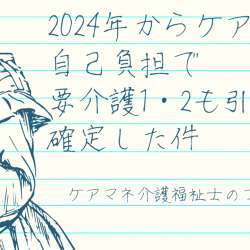 2024年からケア
自己負担で
要介護1・2も引
確定した件
ケアマネ介護福祉士のブ